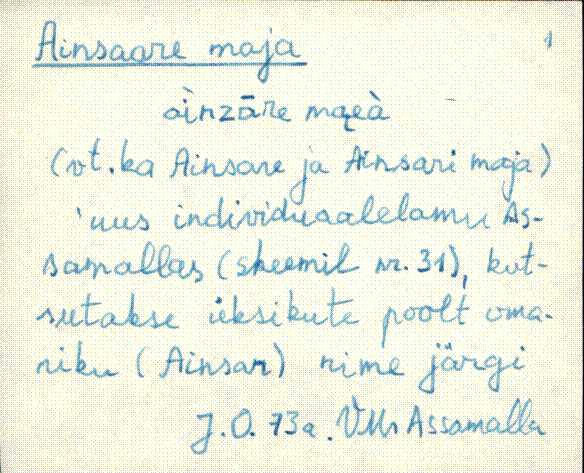 Ainsaare maja 1
àinzāre mai̯à
(vt. ka Ainsare ja Ainsari maja)
'uus individuaalelamu As-
samallas (skeemil nr. 31), kut-
sutakse üksikute poolt oma-
niku (Ainsar) nime järgi
J.O. 73a. VMr Assamalla